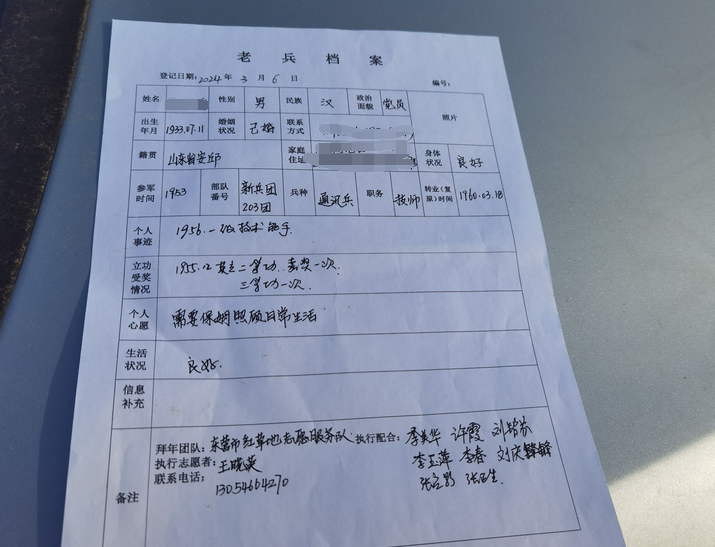 老兵档案
登记日期：2024年 3月 6日 编号：
姓名 性别 男 民族 汉 政治面貌 党员 照片
出生年月 1933.07.11 婚姻状况 已婚 联系方式
籍贯 山东省安丘 家庭住址 身体状况 良好
参军时间 1953 部队番号 新兵团203团 兵种 通讯兵 职务 技师 转业(复原)时间 1960.03.18
个人事迹 1956.一级技术能手.
立功受奖情况 1955.12 二等功. 嘉奖一次.
三等功一次.
个人心愿 需要保姆照顾日常生活
生活状况 良好.
信息补充
备注
拜年团队：东营市红草地志愿服务队 执行配合：季美华 许霞
执行志愿者：王晓英 李玉萍 李春 刘庆锋
联系电话：13054664270